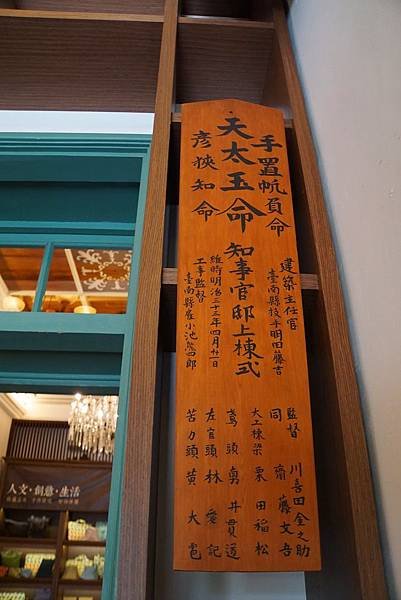 手置帆負命
天太玉命　知事官邸上棟式
彦狹知命
建築主任官
臺南縣技手明田藤吉
維時明治三十三年四月廿一日
工事監督
臺南縣雇小池熊四郎
監督　川喜田金之助
同　齋藤文吾
大工棟梁　栗田稲松
鳶頭　奥井貫道
左官頭　林愛記
苦力頭　黃大電
人文・創意・生活